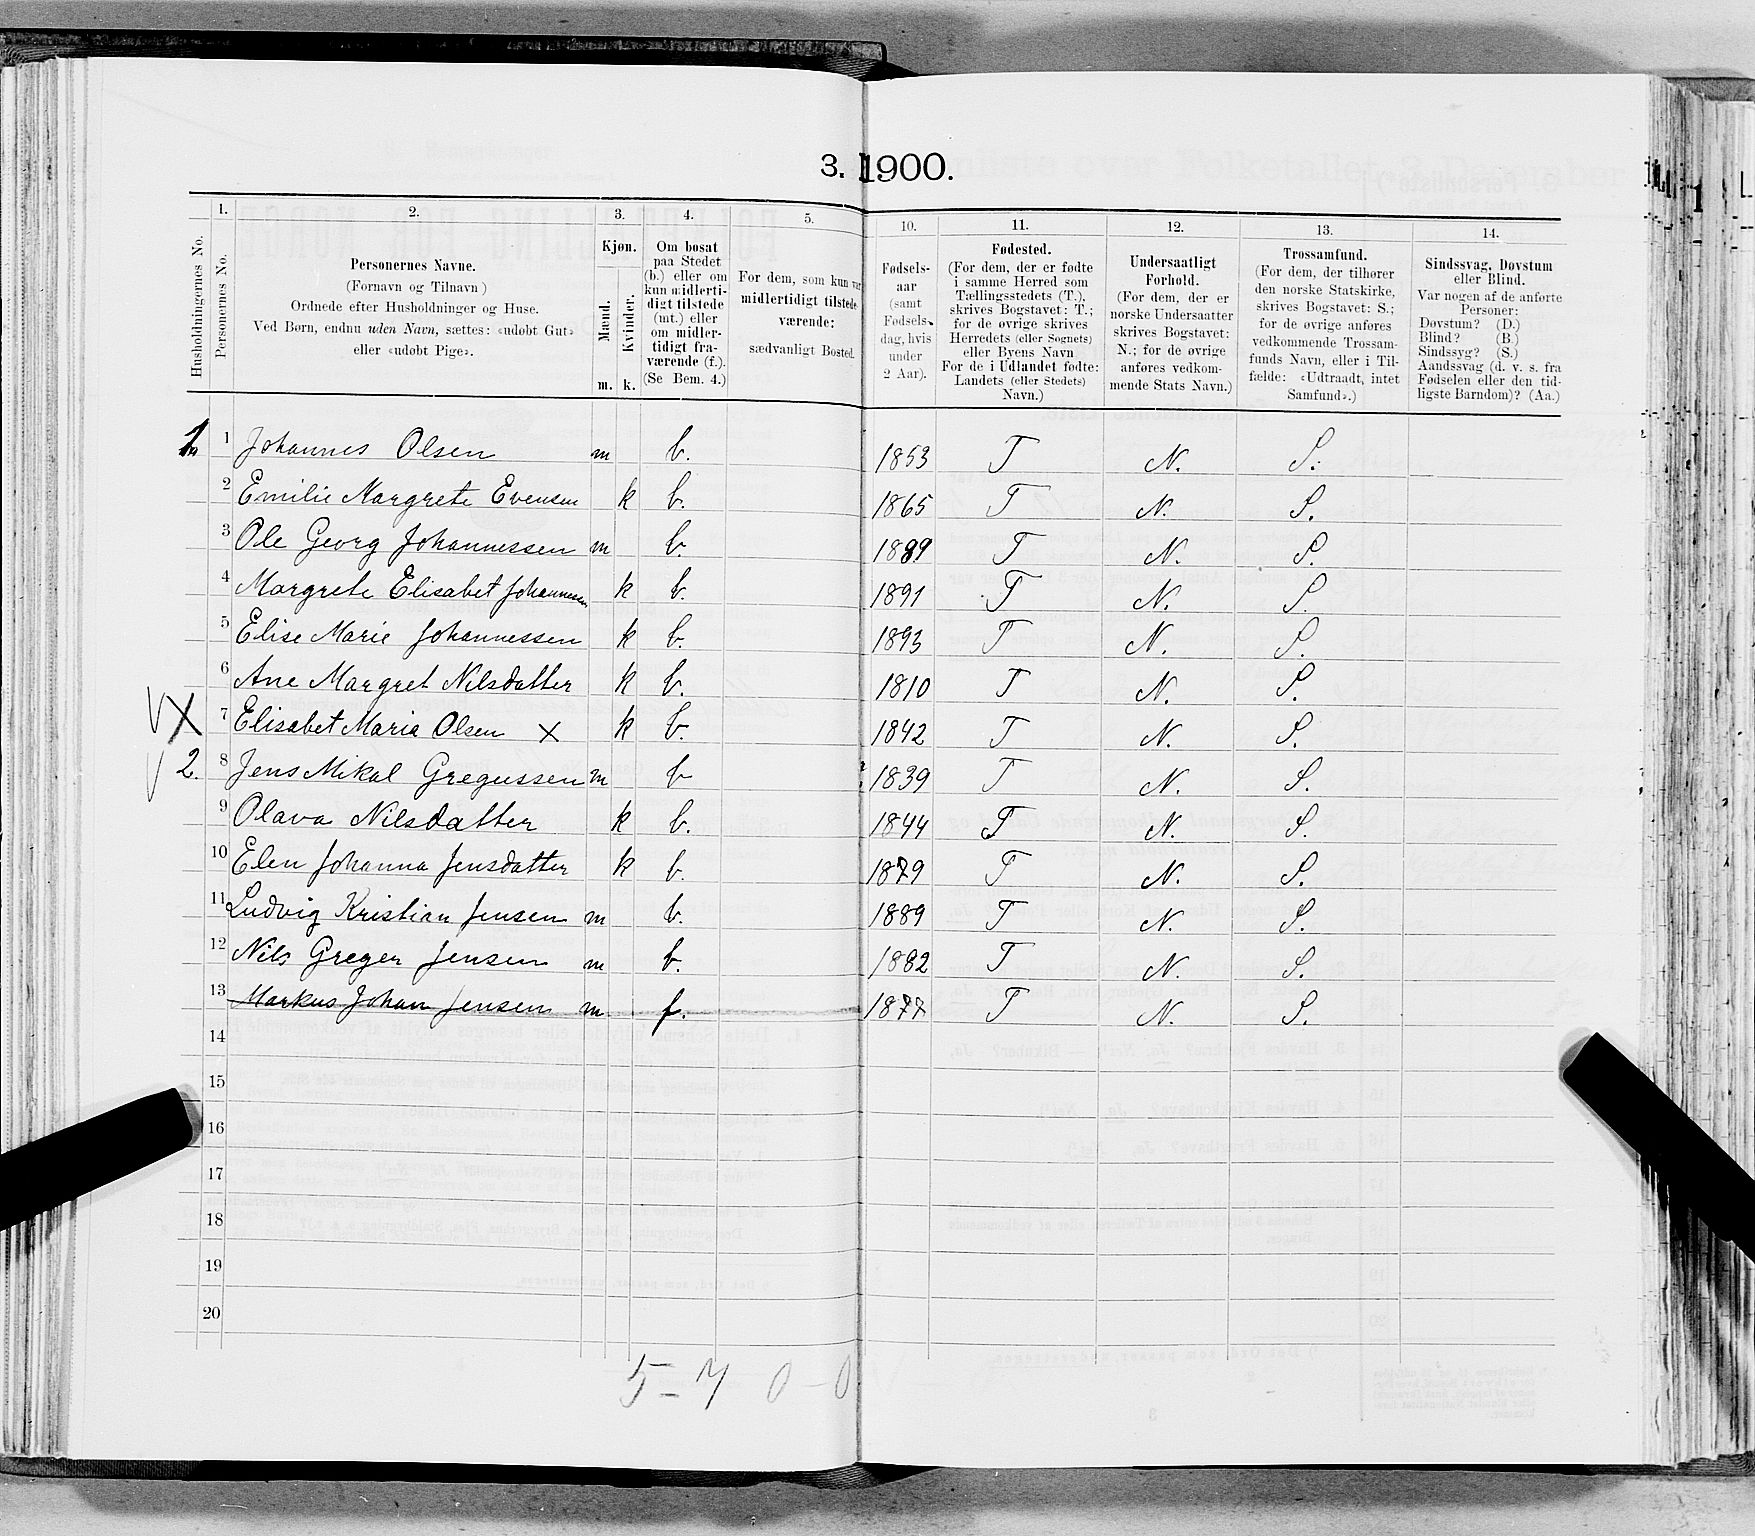 3. 1900.
1. 2. 3. 4. 5. 10. 11. 12. 13. 14.
Husholdningernes No.
Personernes No.
Personernes Navne.
(Fornavn og Tilnavn)
Ordnede efter Husholdninger og Huse.
Ved Børn, endnu uden Navn, sættes: «udøbt Gut»
eller «udøbt Pige».
Kjøn.
Mænd.
Kvinder.
m. k.
Om bosat
paa Stedet
(b.) eller om
kun midlerti-
digt tilstede
(mt.) eller
om midler-
tidigt fra-
værende (f.).
(Se Bem. 4.)
For dem, som kun var
midlertidigt tilstede-
værende:
sædvanligt Bosted.
Fødsels-
aar
(samt
Fødsels-
dag, hvis
under
2 Aar).
Fødested.
(For dem, der er fødte
i samme Herred som
Tællingsstedets (T.),
skrives Bogstavet: T.;
for de øvrige skrives
Herredets (eller Sognets)
eller Byens Navn
For de i Udlandet fødte:
Landets (eller Stedets)
Navn.)
Undersaatligt
Forhold.
(For dem, der er
norske Undersaatter
skrives Bogstavet:
N.; for de øvrige
anføres vedkom-
mende Stats Navn.)
Trossamfund.
(For dem, der tilhører
den norske Statskirke,
skrives Bogstavet: S.;
for de øvrige anføres
vedkommende Trossam-
funds Navn, eller i Til-
fælde: «Udtraadt, intet
Samfund».)
Sindssvag, Døvstum
eller Blind.
Var nogen af de anførte
Personer:
Døvstum? (D.)
Blind? (B.)
Sindssyg? (S.)
Aandssvag (d. v. s. fra
Fødselen eller den tid-
ligste Barndom)? (Aa.)
1. 1 Johannes Olsen m b. 1853 T N. S.
2 Emilie Margrete Evensen k b. 1865 T N. S.
3 Ole Georg Johannessen m b. 1889 T N. S.
4 Margrete Elisabet Johannessen k b. 1891 T N. S.
5 Elise Marie Johannessen k b. 1893 T N. S.
6 Ane Margret Nilsdatter k b. 1810 T N. S.
X 7 Elisabet Maria Olsen X k b. 1842 T N. S.
2. 8 Jens Mikal Gregussen m b 1839 T N. S.
9 Olava Nilsdatter k b. 1844 T N. S.
10 Elen Johanna Jensdatter k b. 1879 T N. S.
11 Ludvig Kristian Jensen m b. 1889 T N. S.
12 Nils Greger Jensen m b. 1882 T N. S.
13 Markus Johan Jensen m f. 1877 T N. S.
14
15
16
17
18
19
20
5 - 7 0 - 0